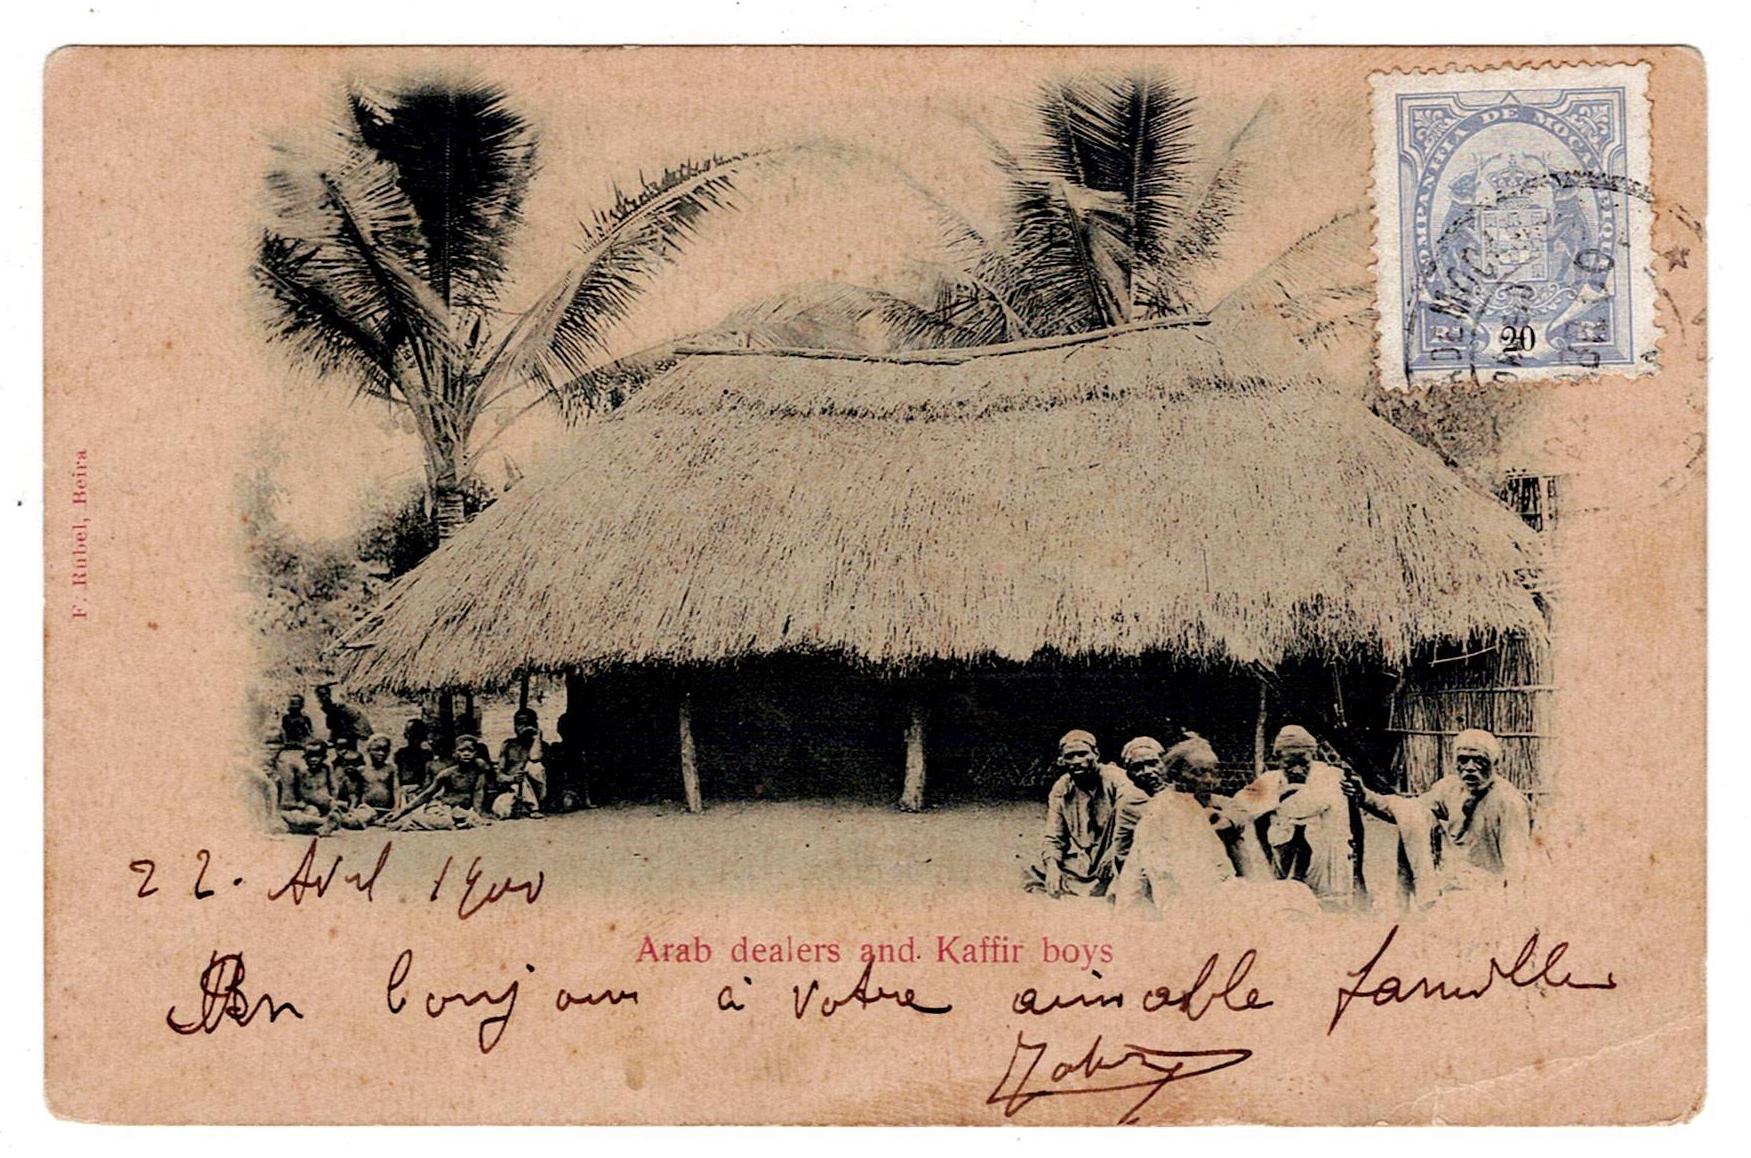 COMPANHIA DE MOÇAMBIQUE
R 20 R
F. Rübel, Beira
22. Avril 1900
Arab dealers and Kaffir boys
Bon bonjour à votre aimable famille